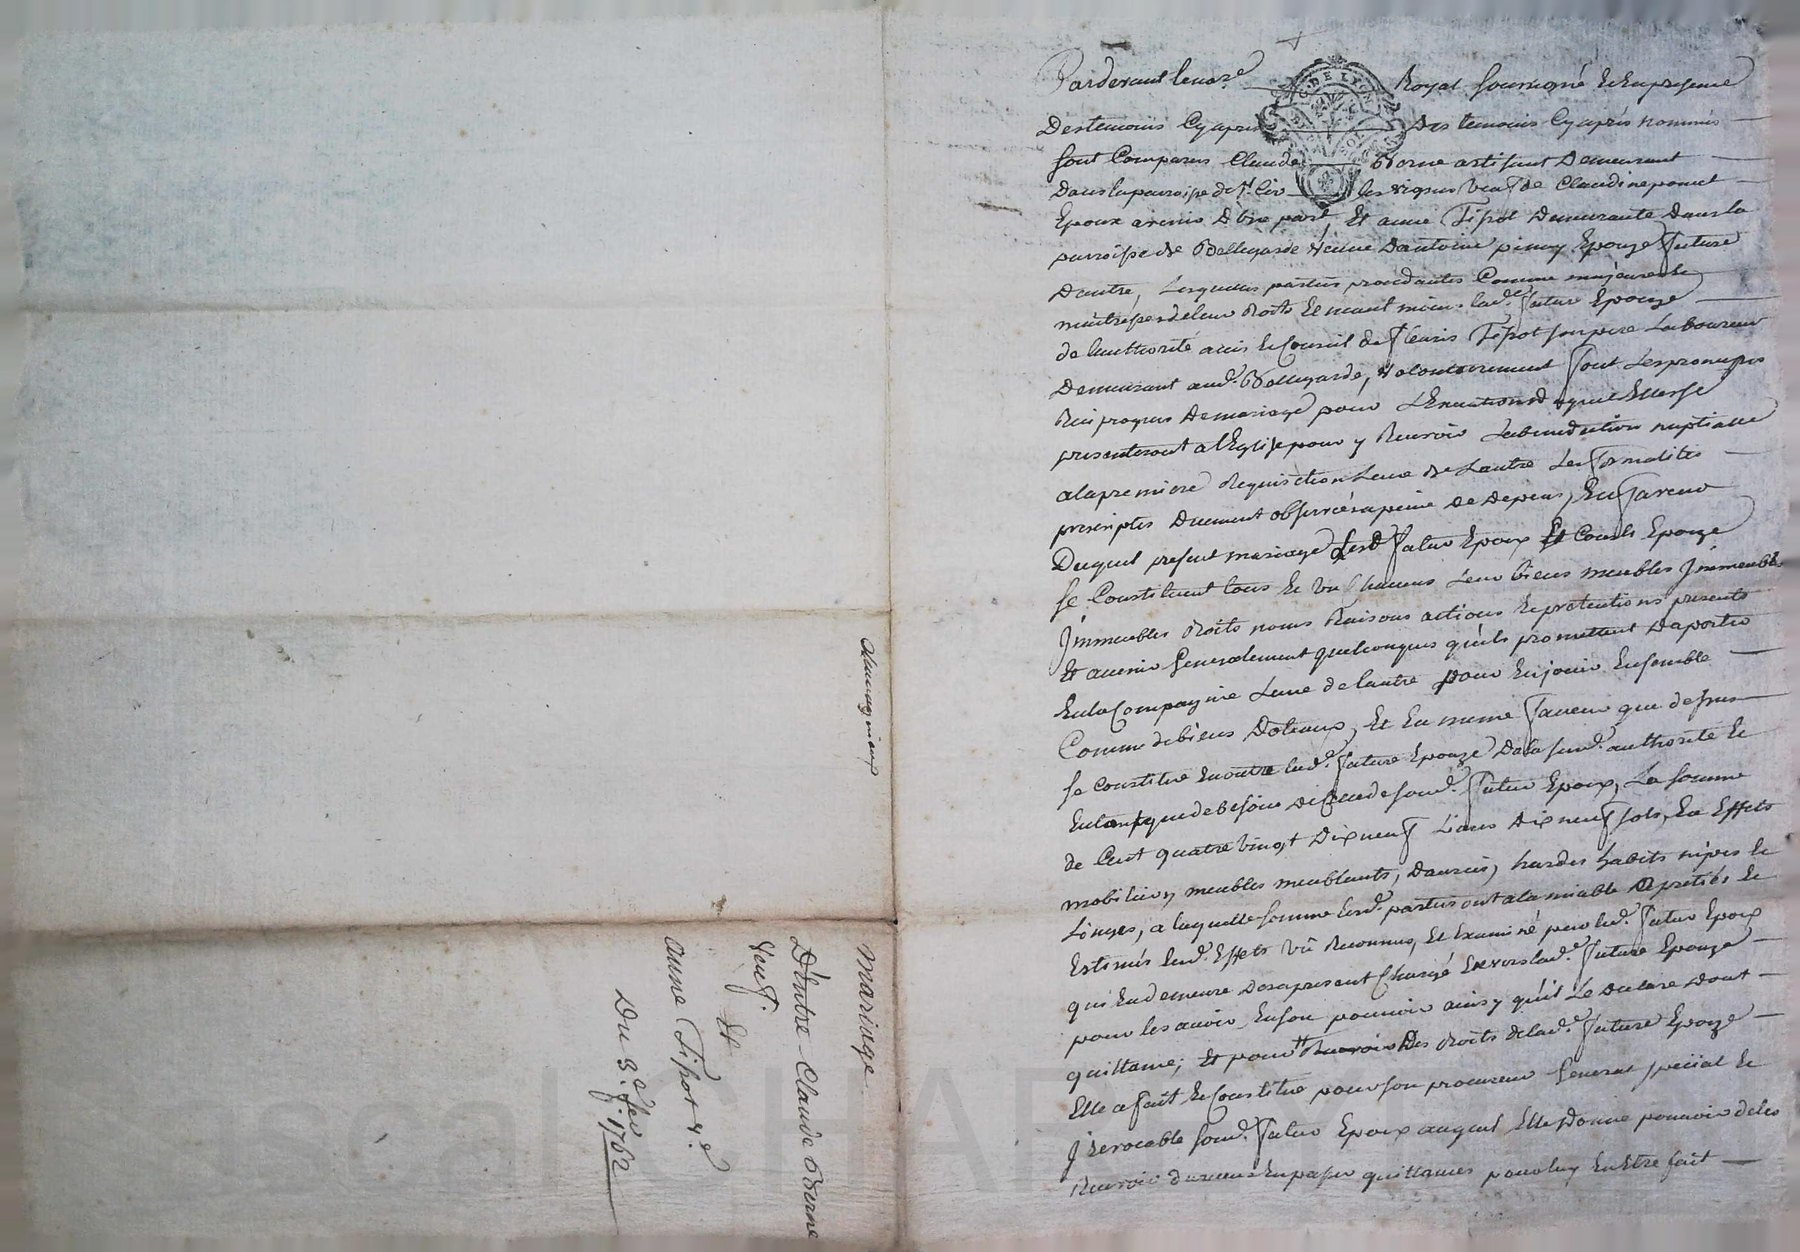 Pardevant le no.re Royal soussigné et en presence
Des temoins Cyaprès Des temoins Cyaprès nommés
sont Comparus Claude Borne artisant Demeurant
Dans la paroisse de St. Cir les vignes veuf de Claudine ponat
Epoux avenir D'une part, Et anne Tipot Demeurante Dans la
parroisse de Bellegarde veuve D'antoine pinay Epouze future
D'autre, Lesquelles parties procedantes Comme majeures et
maitresses de leur droits Et neant moins lad.e future Epouze
de l'authorité avis et Conseil de fleuris Tipot son pere Laboureur
Demeurant aud. Bellegarde, volontairement font Les promesses
Reciproques De mariage pour L'Execution duquel Elles se
presenteront a l'Eglise pour y Recevoir La benediction nuptialle
a la premiere Requisition L'une de L'autre Les formalités
prescriptes Duement observées a peine de Depens, En faveur
Duquel present mariage Lesd. futur Epoux Et Epouze
se Constituent tous et un Chacuns Leur biens meubles Immeubles
Immeubles droits noms Raisons actions et pretentions presents
Et avenir Generalement quelconques qu'ils promettent D'aporter
En la Compagnie L'une de l'autre pour En jouir Ensemble
Comme de biens Dotaux, Et En meme faveur que dessus
se Constitue En outre lad.e future Epouze De la susd. authorité et
En tant que de besoin de sond. futur Epoux, La somme
de Cent quatre vingt Dix neuf Livres Dix neuf sols, En Effets
mobiliers, meubles meublants, Danrées, hardes habits nipes et
Linges, a laquelle somme lesd. parties ont a l'amiable apretiés et
Estimés lesd. Effets vû Reconnus, Et Examiné par led. futur Epoux
qui En demeure Des a present Chargé Envers lad.e future Epouze
pour les avoir En son pouvoir ainsy qu'il Le Declare Dont
quittance; Et pour Recevoir Des droits de lad.e future Epouze
Elle a fait et Constitue pour son procureur General special et
Irrevocable sond. futur Epoux auquel Elle Donne pouvoir de les
Recevoir En passer quittances pour luy En Etre fait
Mariage
D'Entre Claude Borne
Veuf.
Et
anne Tipot v.e
Du 3.e fev. 1762